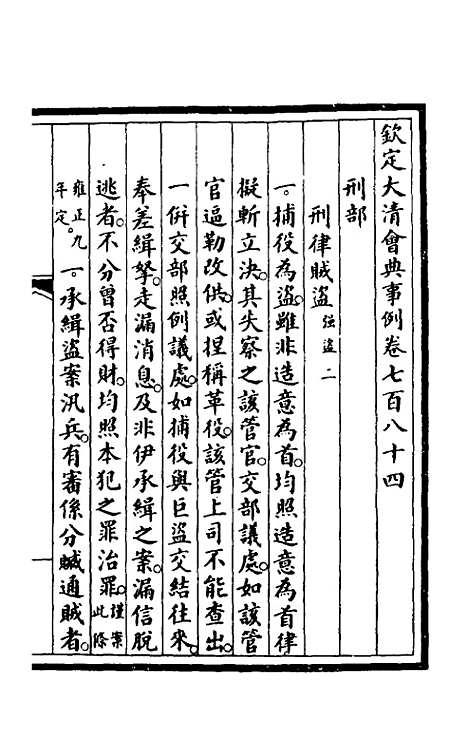 欽定大清會典事例卷七百八十四
刑部
刑律賊盜強盜二
一。捕役為盜。雖非造意為首。均照造意為首律
擬斬立決。其失察之該管官。交部議處。如該管
官逼勒改供。或捏稱革役。該管上司不能查出。
一併交部照例議處。如捕役與巨盜交結往來。
奉差緝拏。走漏消息。及非伊承緝之案。漏信脫
逃者。不分曾否得財。均照本犯之罪治罪。謹案此條
雍正九年定。一。承緝盜案汛兵。有審係分贓通賊者。